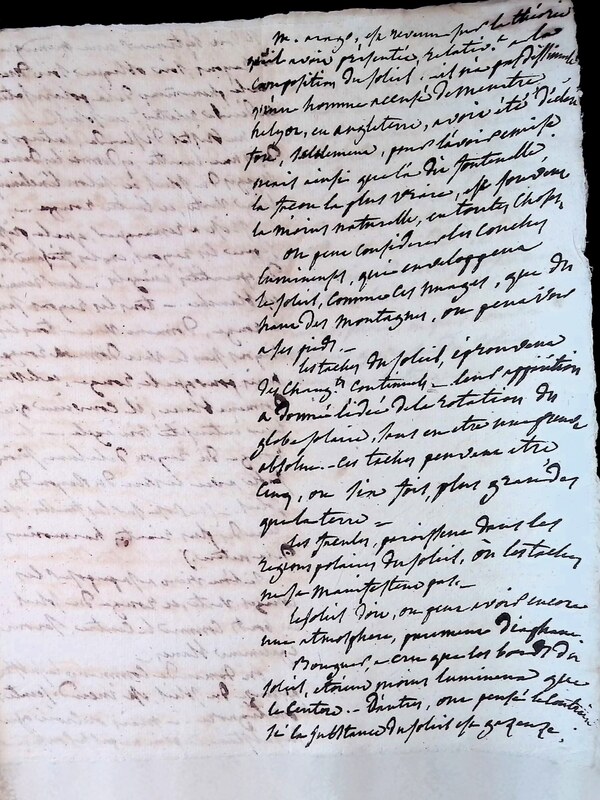 m. arago, est revenu sur la théorie
qu'il avoit présentée, relativt. a la
composition du soleil. - il n'a pas dissimulé
qu'un homme accusé de meurtre
en angleterre, avoit été déclaré
fou, seulement, pour l'avoir emise
mais ainsi que l'a dit fontenelle
la façon la plus vraie, est souvent
la moins naturelle, en toutes choses,
on peut considerer les couches
lumineuses, qui enveloppent
le soleil, comme ces nuages, que du
haut des montagnes, on peut voir
a ses pieds. -
les taches du soleil, éprouvent
des changts. continuels - leur apparition
a donné l'idée de la rotation du
globe solaire, sans en etre une preuve
absolue. - ces taches peuvent etre
cinq, ou six fois, plus grandes
que la terre -
les facules, paroissent dans les
regions polaires du soleil, où les taches
ne se manifestent pas. -
le soleil doit, ou peut avoir encore
une atmosphere, purement diaphane.
Bouguer, a cru que les bords du
soleil, etoient moins lumineux que
le centre. - D'autres, ont pensé le contraire
si la substance du soleil est gazeuze,